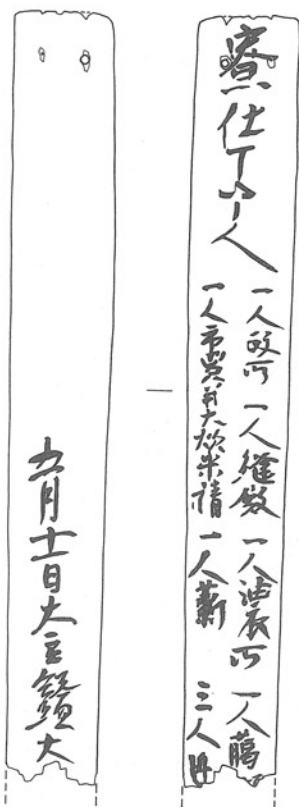 寮仕丁 人
一人政所 一人縫殿 一人染衣所 一人
一人市買并大炊米請 一人薪 三人
五月十一日大主鎰大